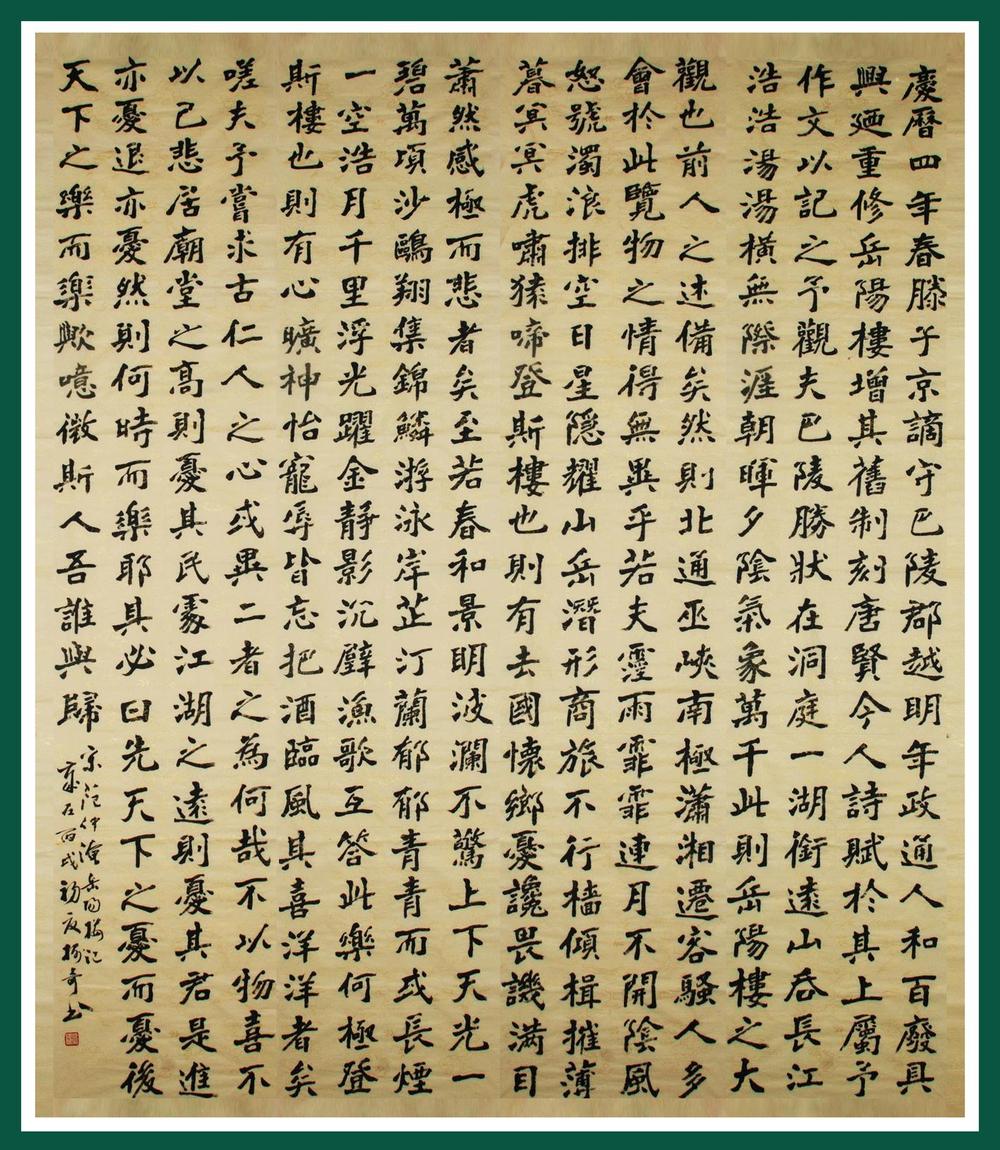 慶曆四年春滕子京謫守巴陵郡越明年政通人和百廢具
興廼重修岳陽樓增其舊制刻唐賢今人詩賦於其上屬予
作文以記之予觀夫巴陵勝狀在洞庭一湖銜遠山吞長江
浩浩湯湯橫無際涯朝暉夕陰氣象萬千此則岳陽樓之大
觀也前人之述備矣然則北通巫峽南極瀟湘遷客騷人多
會於此覽物之情得無異乎若夫霪雨霏霏連月不開陰風
怒號濁浪排空日星隱耀山岳潛形商旅不行檣傾楫摧薄
暮冥冥虎嘯猿啼登斯樓也則有去國懷鄉憂讒畏譏滿目
蕭然感極而悲者矣至若春和景明波瀾不驚上下天光一
碧萬頃沙鷗翔集錦鱗游泳岸芷汀蘭郁郁青青而或長煙
一空浩月千里浮光躍金靜影沉璧漁歌互答此樂何極登
斯樓也則有心曠神怡寵辱皆忘把酒臨風其喜洋洋者矣
嗟夫予嘗求古仁人之心或異二者之為何哉不以物喜不
以己悲居廟堂之高則憂其民處江湖之遠則憂其君是進
亦憂退亦憂然則何時而樂耶其必曰先天下之憂而憂後
天下之樂而樂歟噫微斯人吾誰與歸
宋范仲淹岳陽樓記
歲在丙戌初夏書